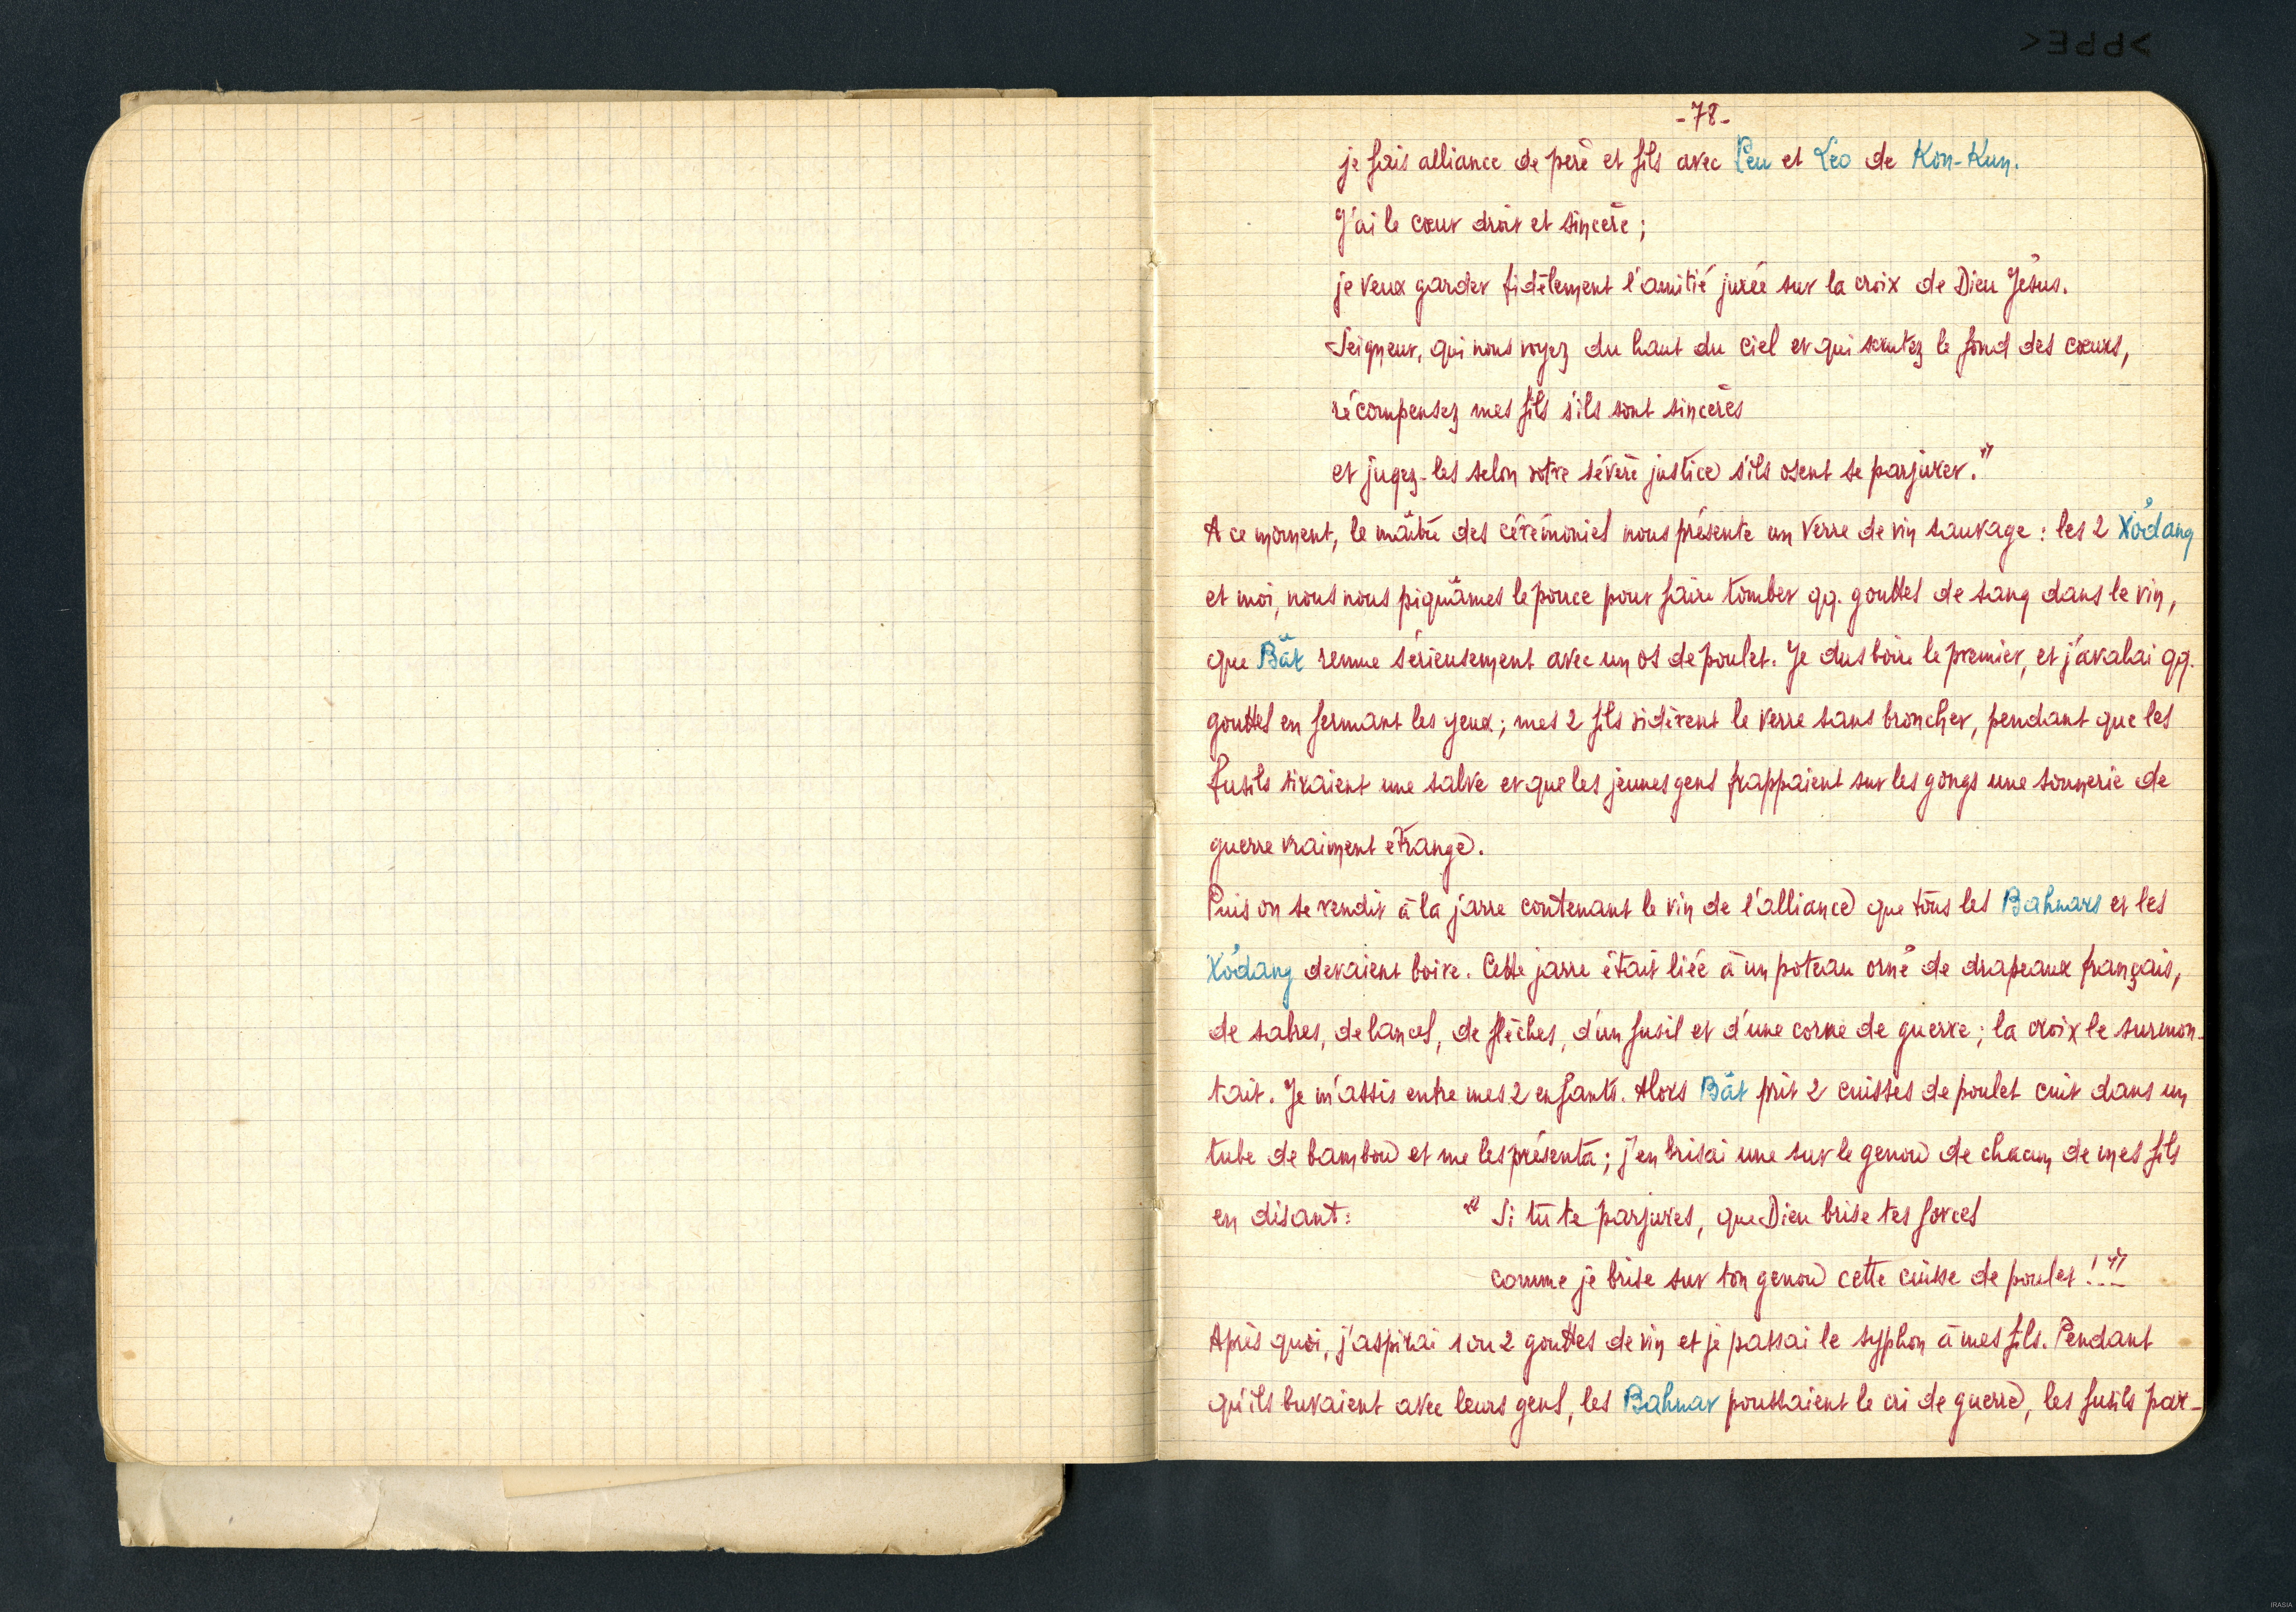 -78-
je fais alliance de père et fils avec Peu et Leo de Kon-Kun.
J'ai le cœur droit et sincère ;
je veux garder fidèlement l'amitié jurée sur la croix de Dieu Jésus.
Seigneur, qui nous voyez du haut du ciel et qui scrutez le fond des cœurs,
récompensez mes fils s'ils sont sincères
et jugez-les selon votre sévère justice s'ils osent se parjurer."
A ce moment, le maître des cérémonies nous présente un verre de vin sauvage : les 2 Xơdang
et moi, nous nous piquâmes le pouce pour faire tomber qq. gouttes de sang dans le vin,
que Băt remue sérieusement avec un os de poulet. Je dus boire le premier, et j'avalai qq.
gouttes en fermant les yeux ; mes 2 fils vidèrent le verre sans broncher, pendant que les
fusils tiraient une salve et que les jeunes gens frappaient sur les gongs une sonnerie de
guerre vraiment étrange.
Puis on se rendit à la jarre contenant le vin de l'alliance que tous les Bahnars et les
Xơdang devaient boire. Cette jarre était liée à un poteau orné de drapeaux français,
de sabres, de lances, de flèches, d'un fusil et d'une corne de guerre ; la croix le surmon-
tait. Je m'assis entre mes 2 enfants. Alors Băt prit 2 cuisses de poulet cuit dans un
tube de bambou et me les présenta ; j'en brisai une sur le genou de chacun de mes fils
en disant : " Si tu te parjures, que Dieu brise tes forces
comme je brise sur ton genou cette cuisse de poulet !..."
Après quoi, j'aspirai 1 ou 2 gouttes de vin et je passai le syphon à mes fils. Pendant
qu'ils buvaient avec leurs gens, les Bahnar poussaient le cri de guerre, les fusils par-
>PPE<
IRASIA